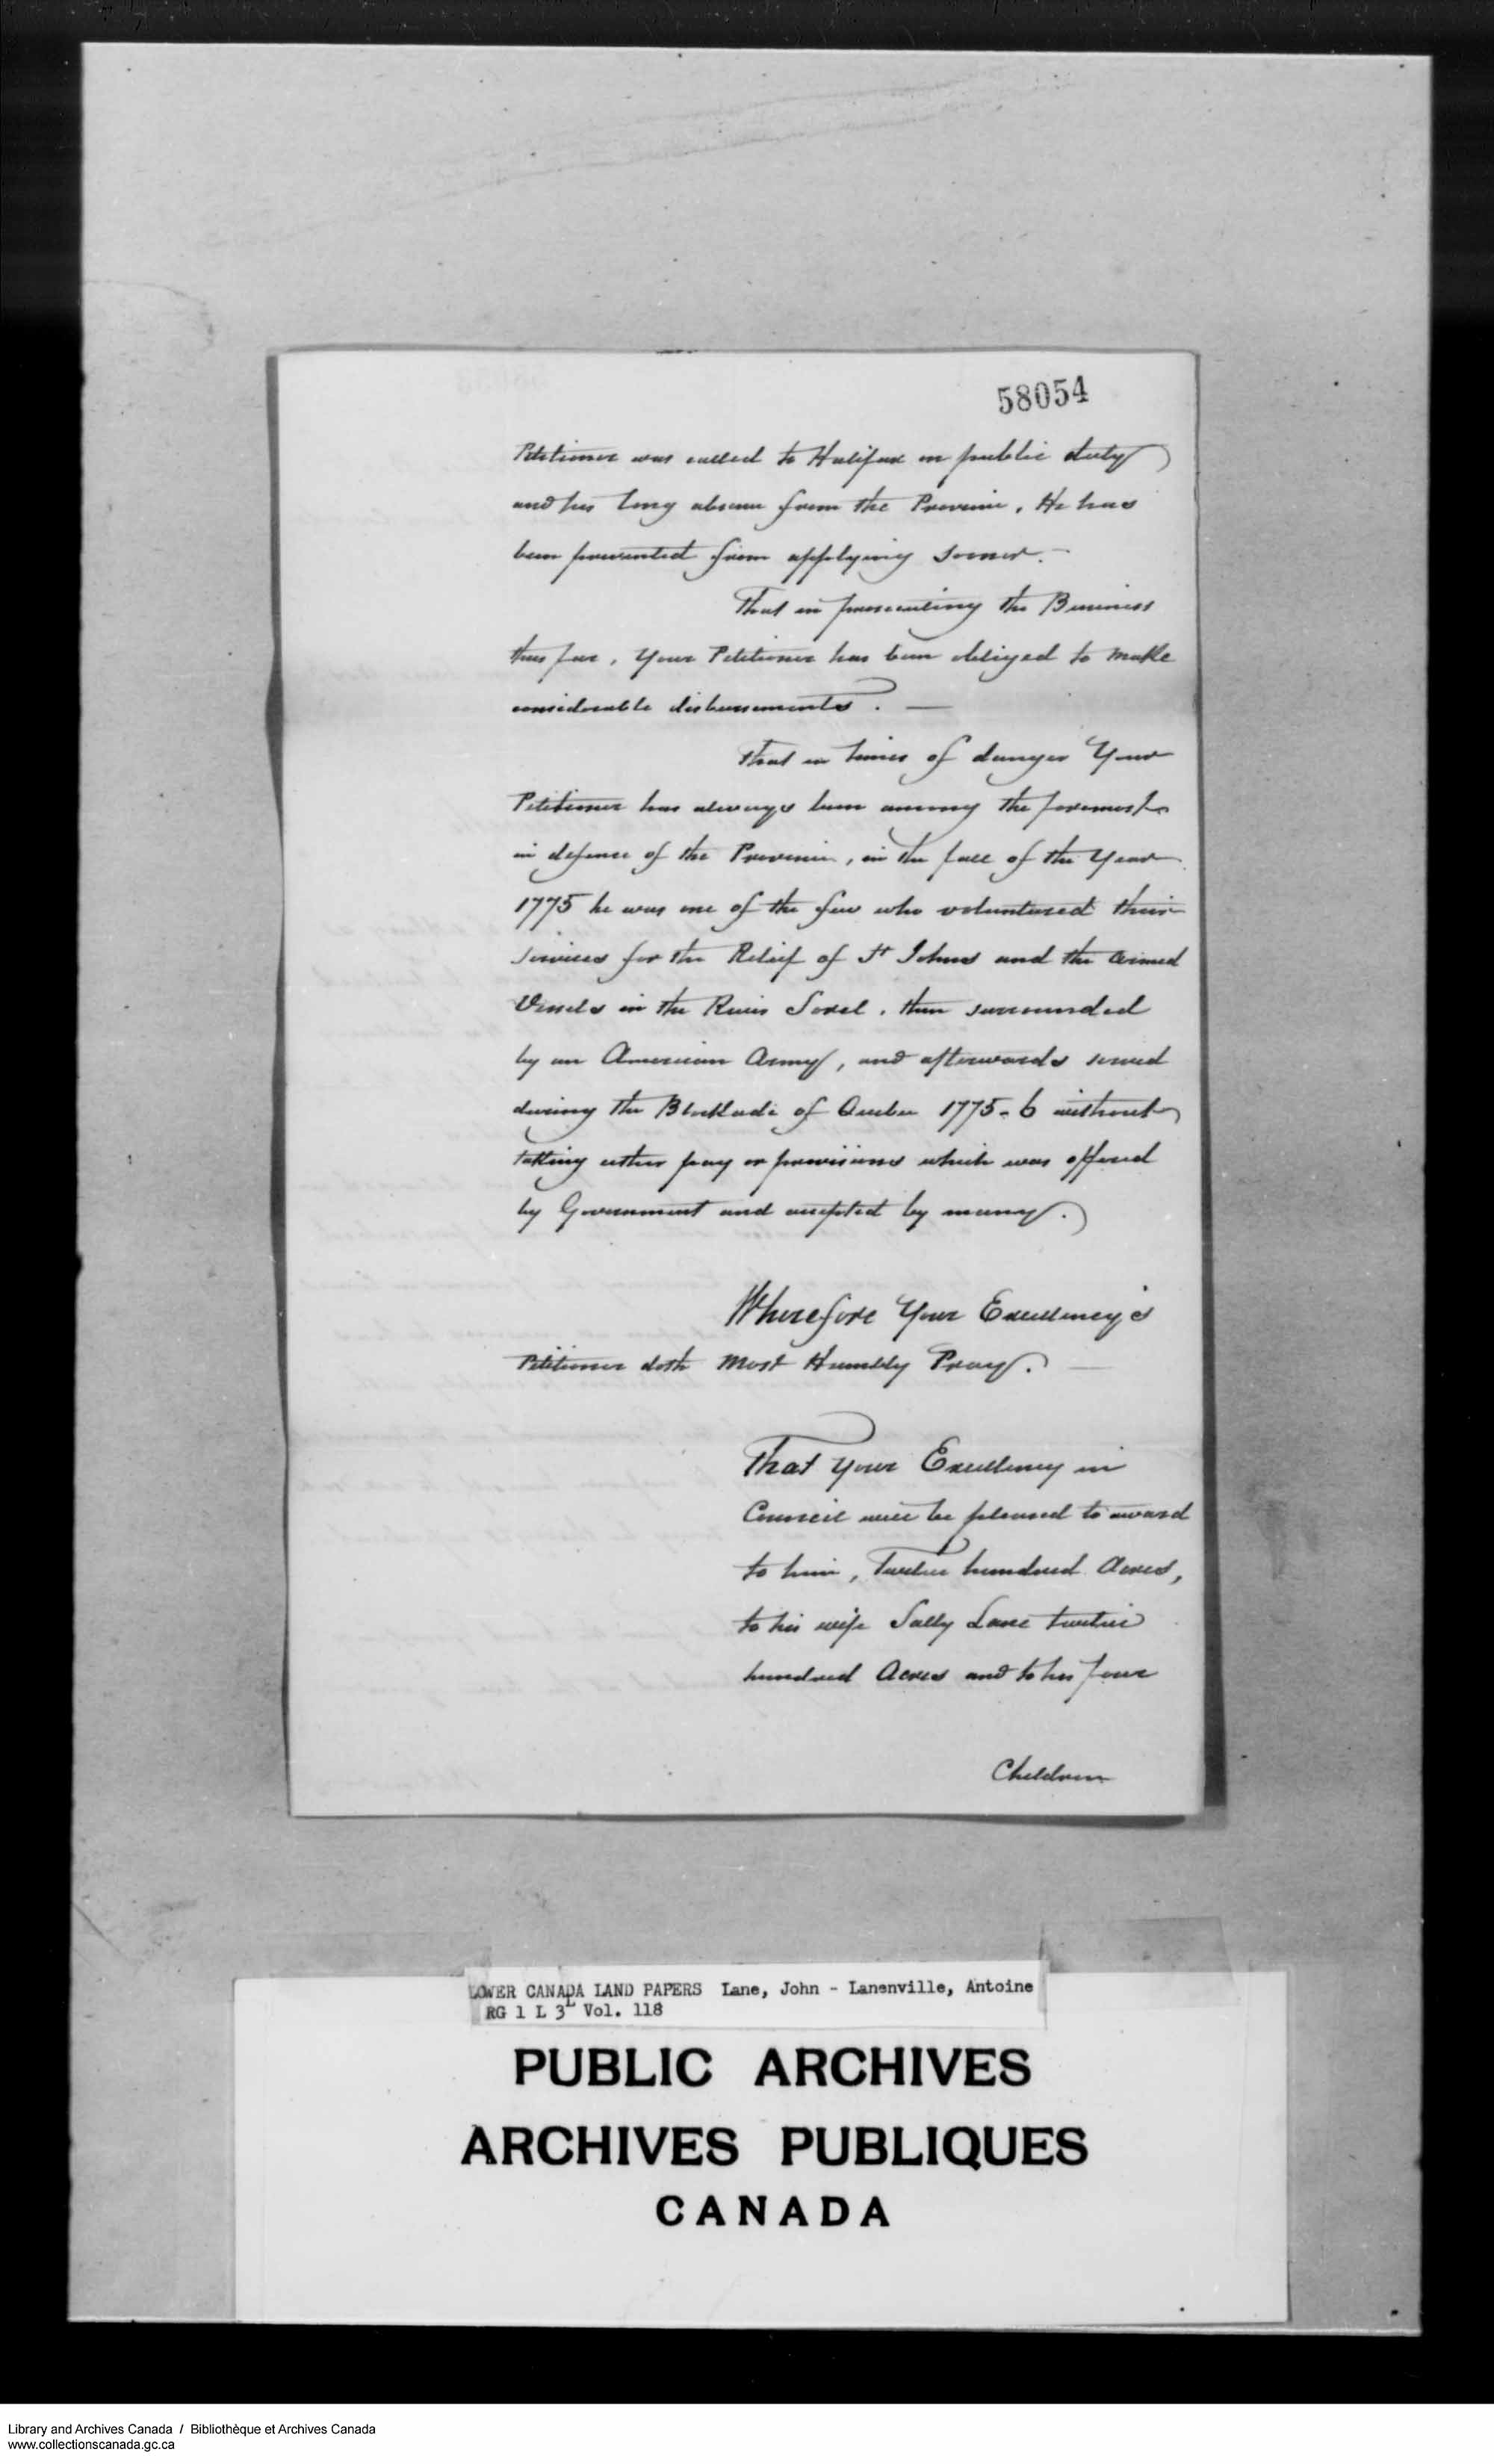 58054
Petitioner was called to Halifax on public duty
and his long absence from the Province, He has
been prevented from applying sooner. —
That in prosecuting the Business
thus far, Your Petitioner has been obliged to make
considerable disbursements. —
That in times of danger Your
Petitioner has always been among the foremost
in defence of the Province, in the fall of the Year
1775 he was one of the few who volunteered their
services for the Relief of St Johns and the armed
Vessels in the River Sorel, then surrounded
by an American Army, and afterwards served
during the Blockade of Quebec 1775-6 without
taking either pay or provisions which was offered
by Government and accepted by many.
Wherefore Your Excellency's
Petitioner doth Most Humbly Pray. —
That Your Excellency in
Council will be pleased to award
to him, Twelve hundred Acres,
to his wife Sally Lane twelve
hundred Acres and to his four
Children
LOWER CANADA LAND PAPERS Lane, John - Lanenville, Antoine
RG 1 L 3L Vol. 118
PUBLIC ARCHIVES
ARCHIVES PUBLIQUES
CANADA
Library and Archives Canada / Bibliothèque et Archives Canada
www.collectionscanada.gc.ca